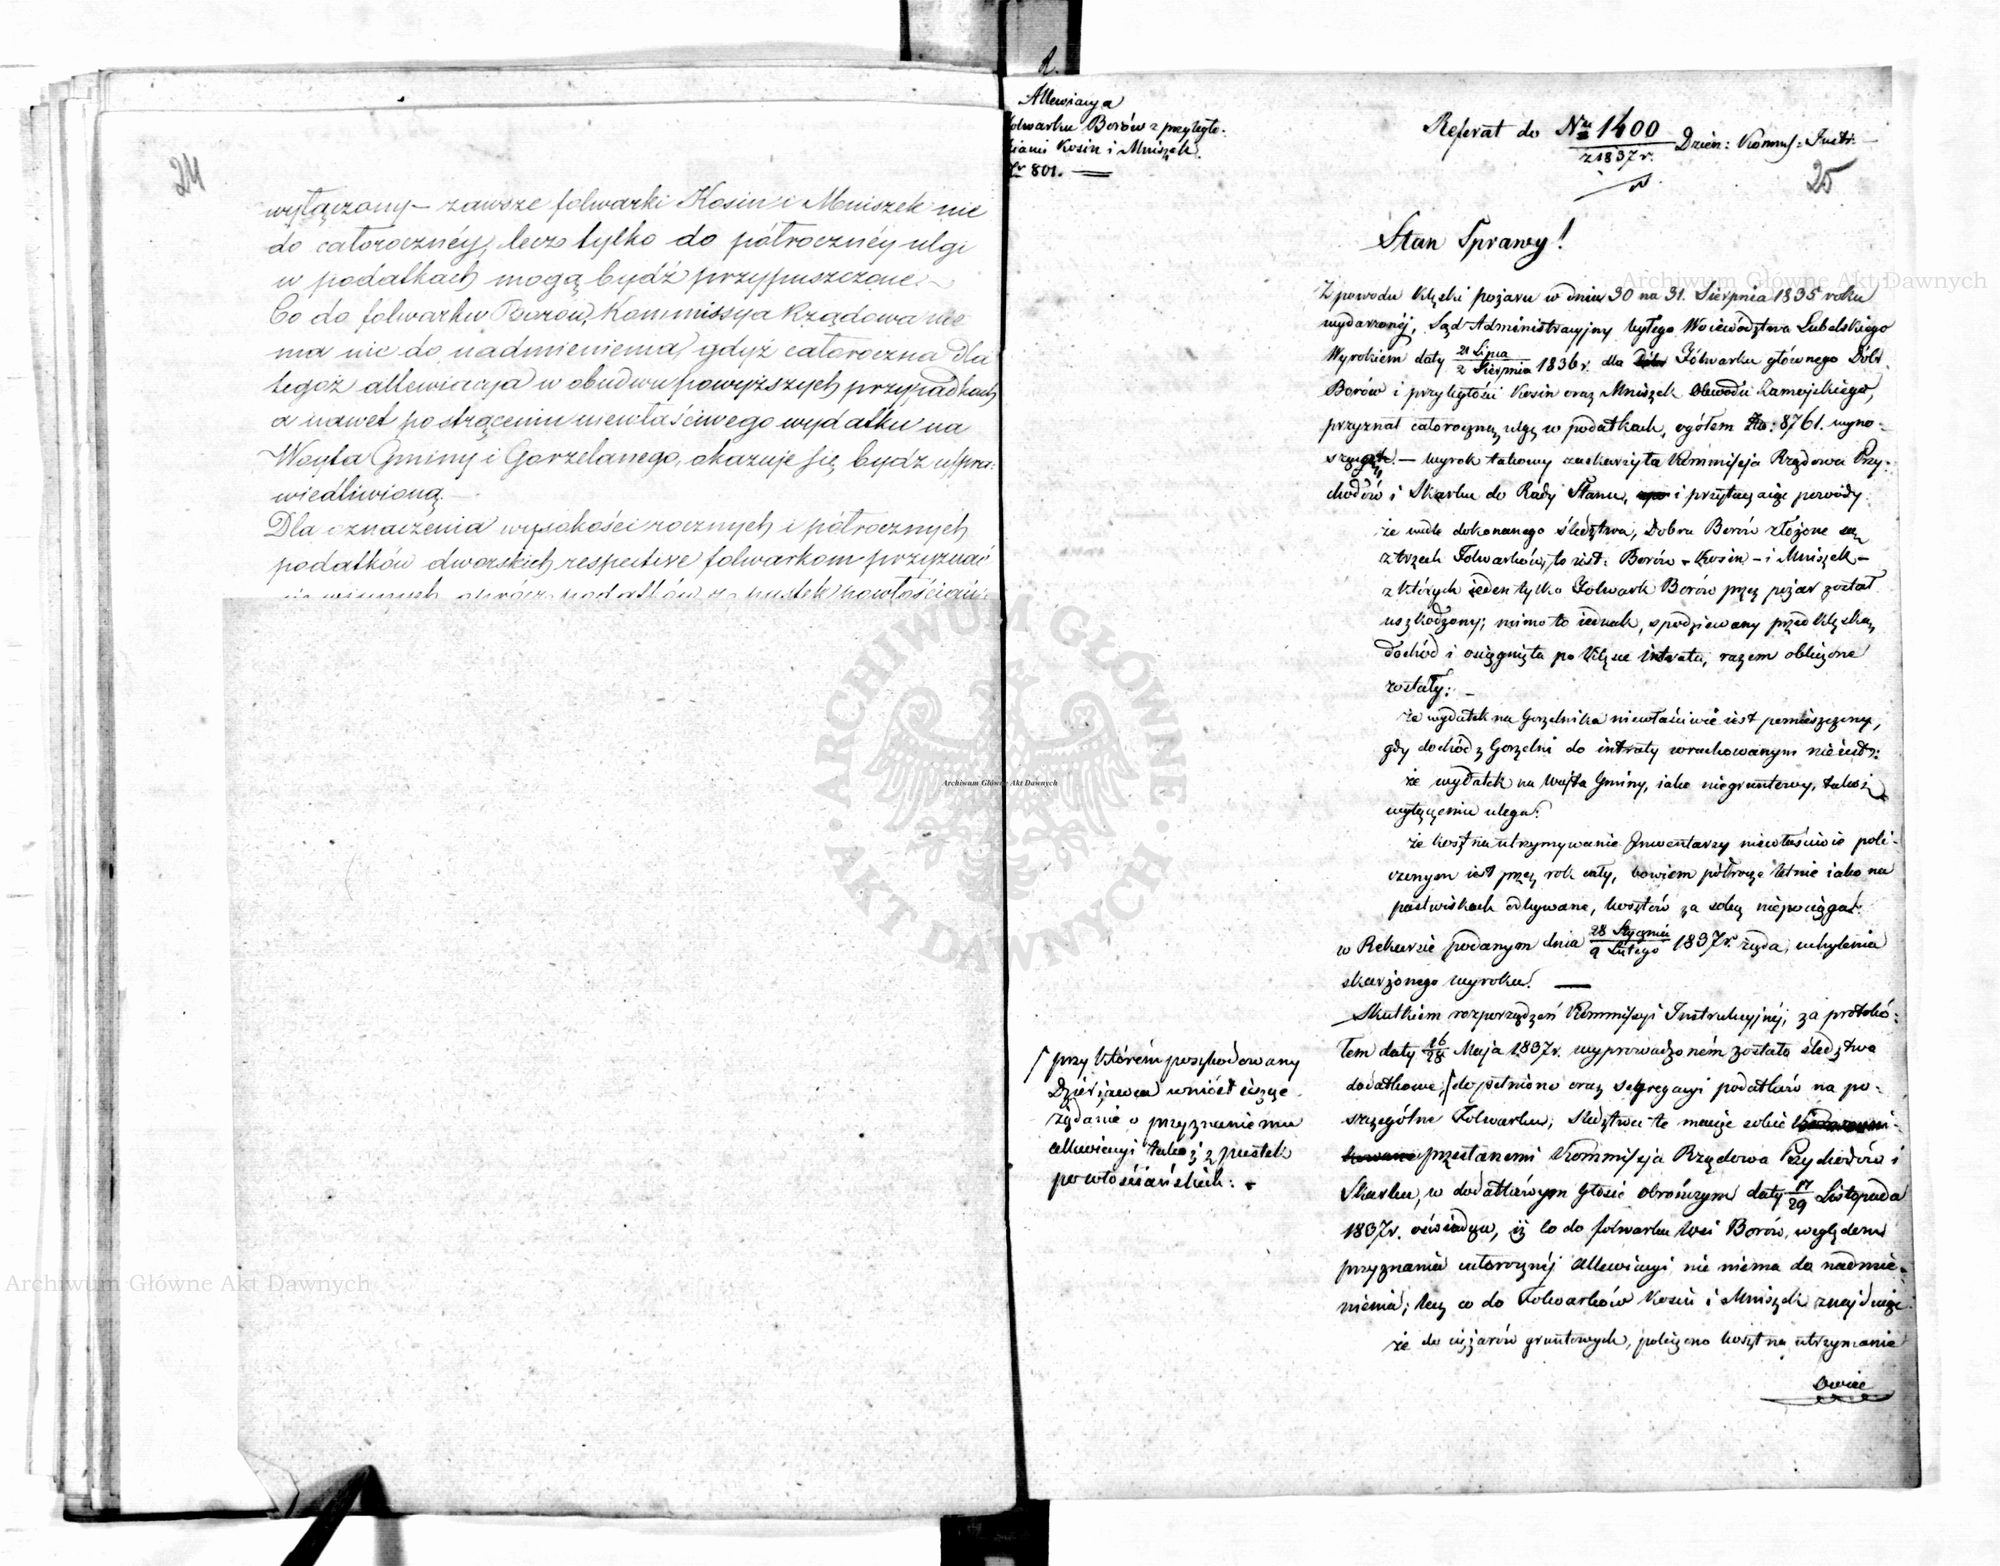 24
wyłączony – zawsze folwarki Kosin i Mniszek nie
do całorocznéy, lecz tylko do półrocznéy ulgi
w podatkach mogą bydź przypuszczone. –
Co do folwarku Borów, Kommissya Rządowa nie
ma nic do nadmienienia, gdyż całoroczna dla
tegoż allewiacya w obudwu powyższych przypadkach
a nawet po strąceniu niewłaściwego wydatku na
Woyta Gminy i Gorzelanego, okazuje się bydz uspra-
wiedliwioną. –
Dla oznaczenia wysokości rocznych i półrocznych
podatków dworskich respective folwarkom przyznać
się winnych, oprócz podatków z pustek powłościań-
R.
Allewiacya
folwarku Borów z przyległo-
ściami Kosin i Mniszek.
Nr 801. —
Referat do Nru 1400
z 1837 r. Dzien: Kommis: Instr. —
25
Stan Sprawy!
Z powodu klęski pożaru w dniu 30 na 31. Sierpnia 1835 roku
wydarzonéj, Sąd Administracyjny byłego Województwa Lubelskiego
Wyrokiem daty 21 Lipca / 2 Sierpnia 1836 r. dla Folwarku głównego Dóbr
Borów i przyległości Kosin oraz Mniszek Obwodu Zamojskiego,
przyznał całoroczną ulgę w podatkach, ogółem Złp: 8761. wyno-
szącą. – wyrok takowy zaskarżyła Kommissja Rządowa Przy-
chodów i Skarbu do Rady Stanu, i przytaczając powody
że wedle dokonanego śledztwa, Dobra Borów złożone są
z trzech Folwarków, to iest: Borów – Kosin – i Mniszek –
z których ieden tylko Folwark Borów przez pożar został
uszkodzony; mimo to iednak, spodziewany przed klęską
dochód i osiągnięta po klęsce intrata, razem obliczone
zostały: –
że wydatek na Gorzelnika niewłaściwie iest pomieszczony,
gdy dochód z Gorzelni do intraty wrachowanym nie iest:
że wydatek na Wojta Gminy, iako niegruntowy, także
wyłączeniu ulega:
że koszt na utrzymywanie Inwentarzy niewłaściwie poli-
czonym iest przez rok cały, bowiem półrocze letnie iako na
pastwiskach odbywane, kosztów za sobą niepociąga:
w Rekursie podanym dnia 28 Stycznia / 9 Lutego 1837 r. żąda, uchylenia
skarżonego wyroku. —
Skutkiem rozporządzeń Kommissyi Instrukcyjnéj, za protokó-
łem daty 16/28 Maja 1837 r. wyprowadzoném zostało śledztwo
dodatkowe, do pełnione oraz segregacyi podatków na po-
szczególne Folwarki; śledztwo te mając sobie
przesłanemi Kommissja Rządowa Przychodów i
Skarbu, w dodatkowym głosie obrończym daty 17/29 Listopada
1837 r. oświadcza, iż co do folwarku wsi Borów, względem
przyznania całorocznéj allewiacyi nic niema do nadmie-
nienia; lecz co do Folwarków Kosin i Mniszek znajduje
że do ciężarów gruntowych, policzono koszt na utrzymanie
Owiec
przy którém poszkodowany
Dzierżawca wniósł ieszcze
żądanie o przyznanie mu
allewiacyi także z pustek
powłościańskich: –
Archiwum Główne Akt Dawnych
Archiwum Główne Akt Dawnych
Archiwum Główne Akt Dawnych
ARCHIWUM GŁÓWNE · AKT DAWNYCH ·